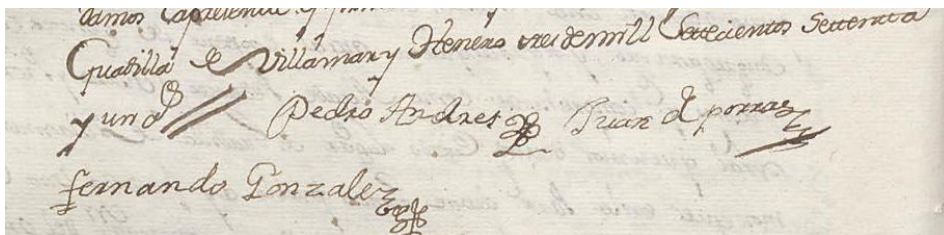 damos la presente
Guadilla de Villamar y Henero tres de mill Settecientos Settenta
y uno Pedro Andres Juan de porras
fernando Gonzalez